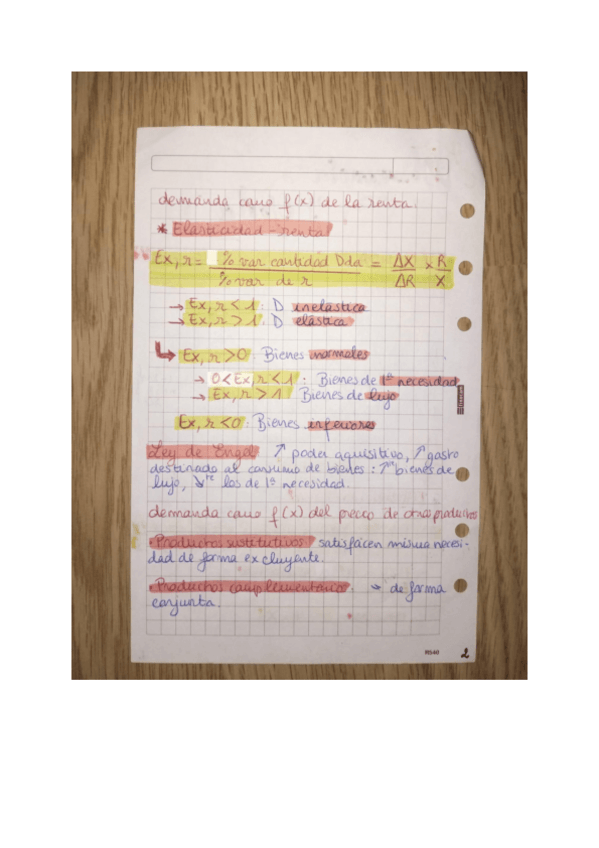 demanda como f(x) de la renta.
* Elasticidad - renta
Ex, r = % var cantidad Dda / % var de r = ΔX / ΔR × R / X
→ Ex, r < 1 : D inelástica
→ Ex, r > 1 : D elástica
↳ Ex, r > 0 : Bienes normales
→ 0 < Ex, r < 1 : Bienes de 1ª necesidad
→ Ex, r > 1 Bienes de lujo
Ex, r < 0 : Bienes inferiores
Ley de Engel. ↗ poder aquisitivo, ↗ gasto
destinado al consumo de bienes : ↗ᵐ bienes de
lujo, ↘ʳᵉ los de 1ª necesidad.
demanda como f(x) del precio de otros productos
· Productos sustitutivos: satisfacen misma necesi-
dad de forma excluyente.
· Productos complementarios: → de forma
conjunta.
2